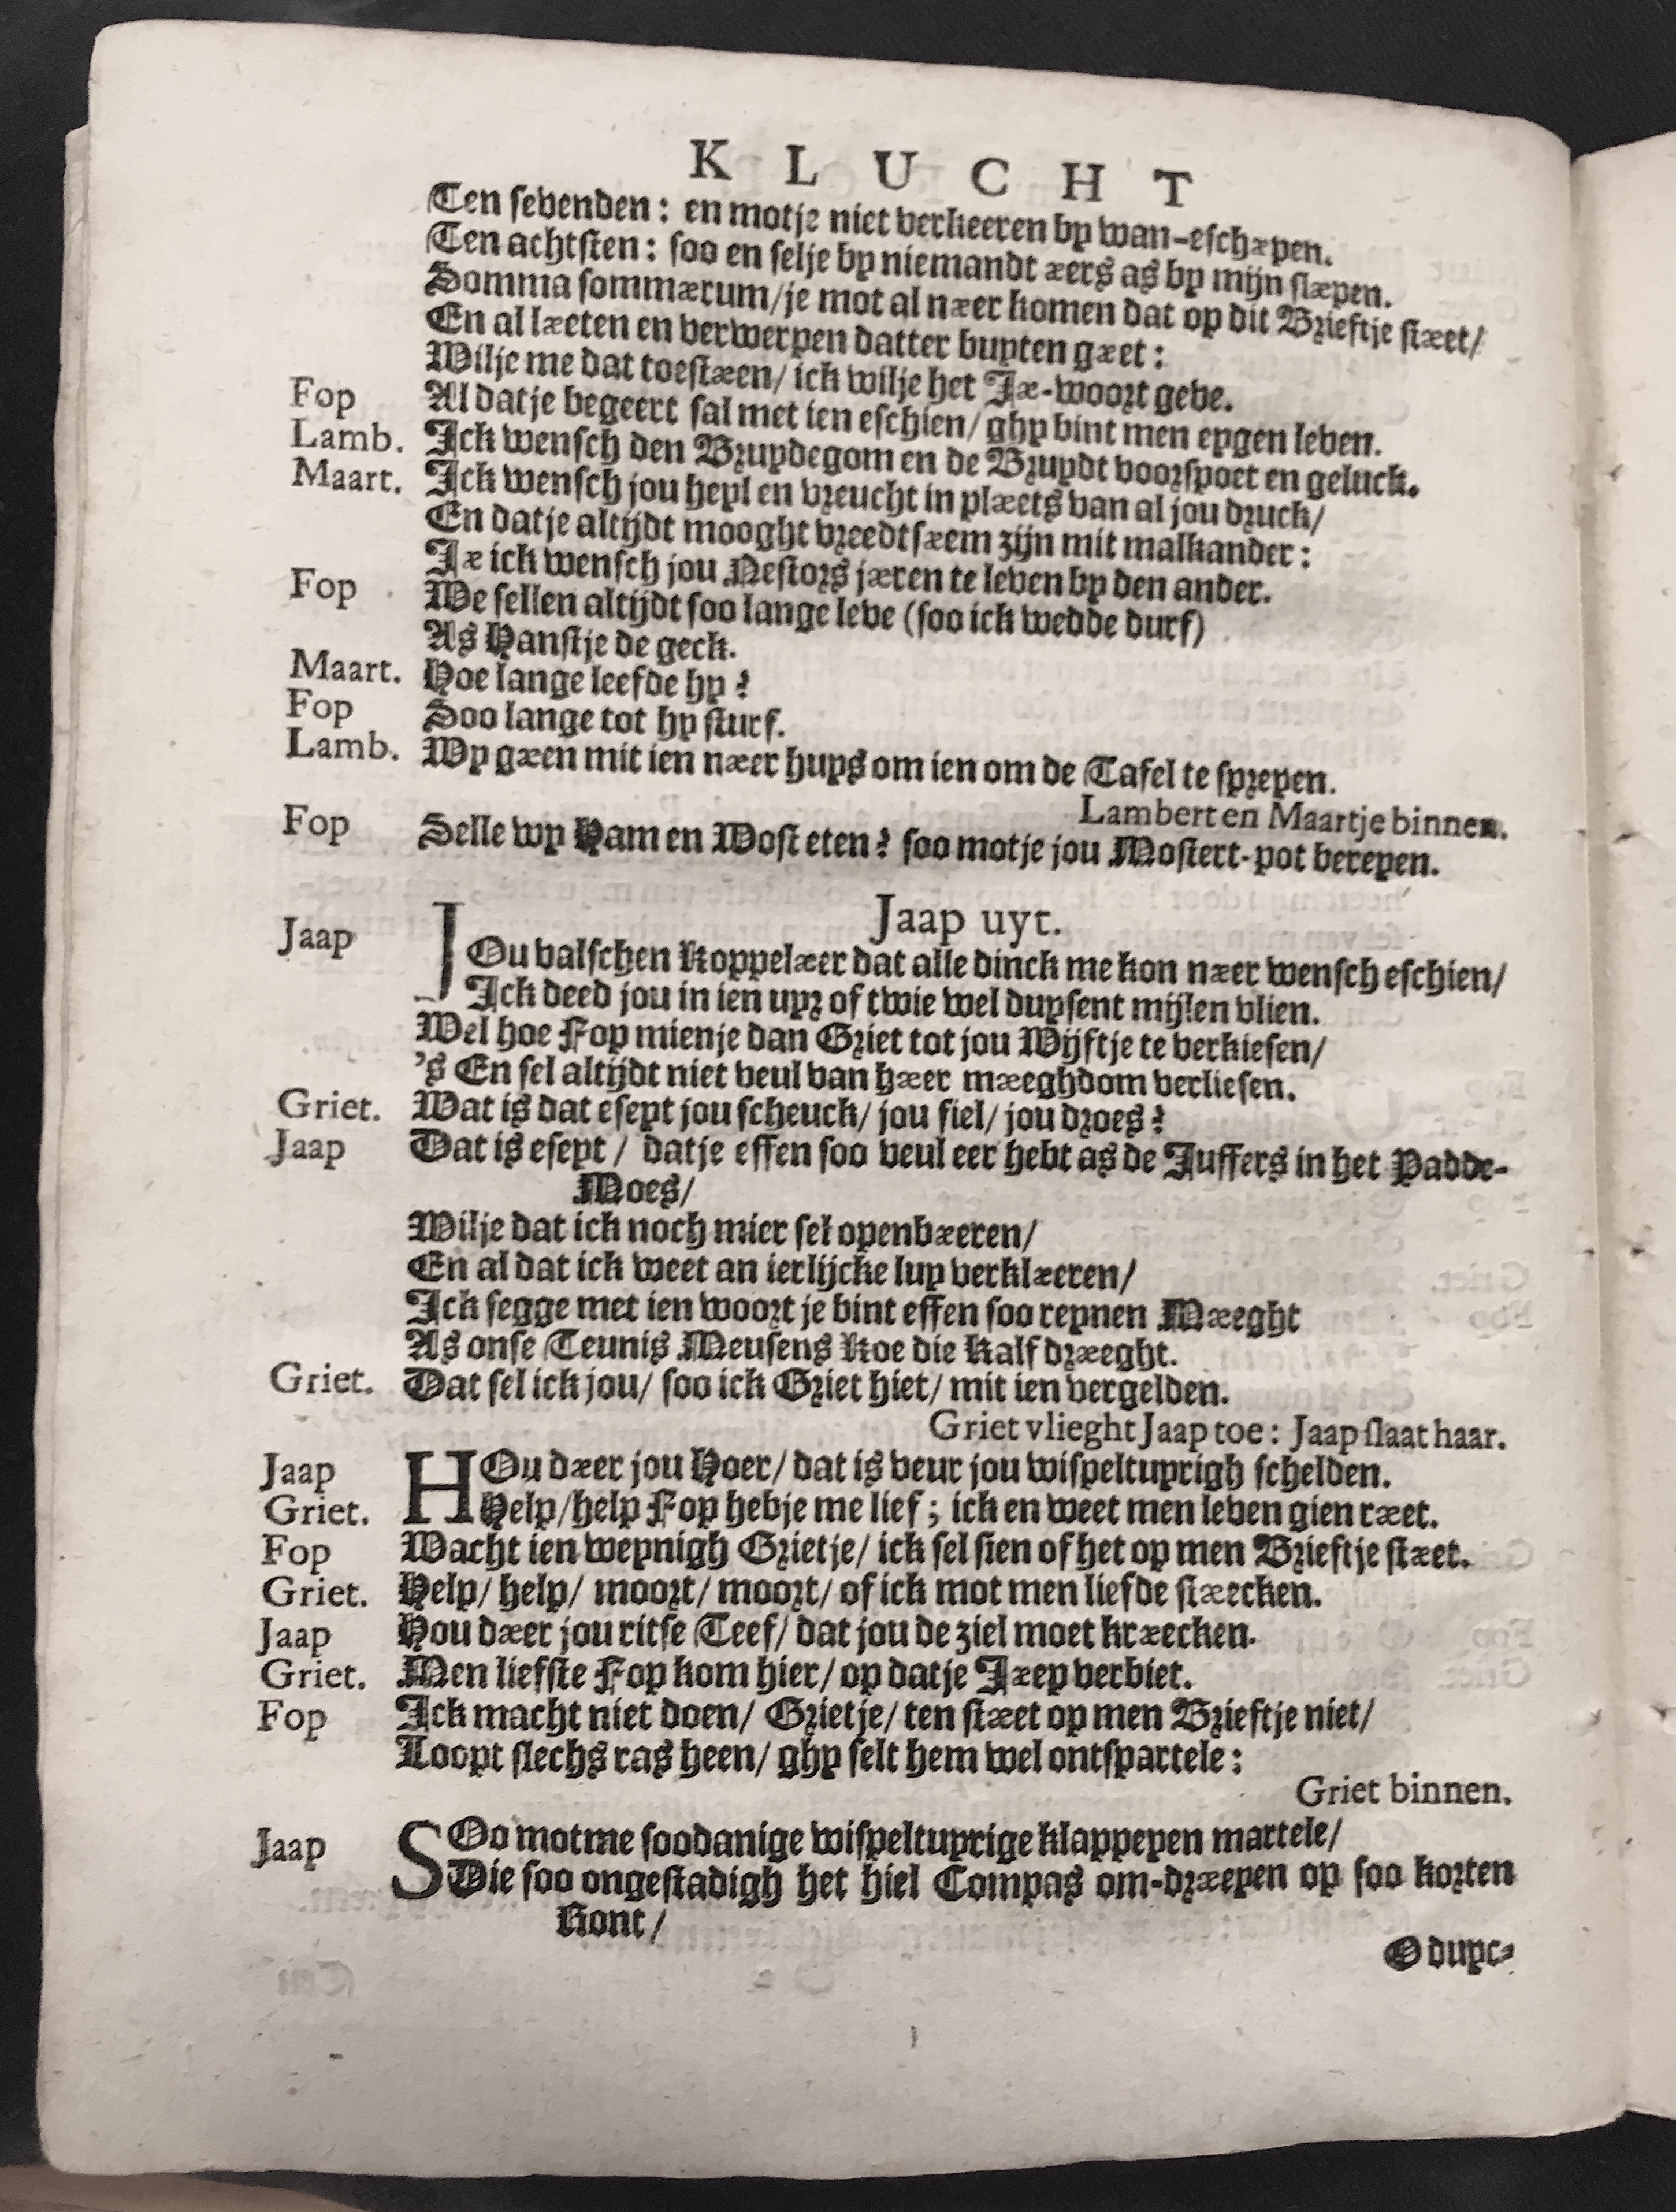 KLUCHT
Ten sevenden: en motje niet verkeeren by wan-eschæpen.
Ten achtsten: soo en selje by niemandt æers as by mijn slæpen.
Somma sommærum/je mot al næer komen dat op dit Brieftje stæet/
En al læeten en verwerpen datter buyten gæet:
Wilje me dat toestæen/ ick wilje het Jæ-woort geve.
Fop Al datje begeert sal met ien eschien/ ghy bint men eygen leven.
Lamb. Ick wensch den Bruydegom en de Bruydt voorspoet en geluck.
Maart. Ick wensch jou heyl en vreucht in plæets van al jou druck/
En datje altijdt mooght vreedtsæem zijn mit malkander:
Jæ ick wensch jou Nestors jæren te leven by den ander.
Fop We sellen altijdt soo lange leve (soo ick wedde durf)
As Hanstje de geck.
Maart. Hoe lange leefde hy?
Fop Soo lange tot hy sturf.
Lamb. Wy gæen mit ien næer huys om ien om de Tafel te spreyen.
Lambert en Maartje binnen.
Fop Selle wy Ham en Wost eten? soo motje jou Mostert-pot bereyen.
Jaap uyt.
Jaap JOu valschen Koppelæer dat alle dinck me kon næer wensch eschien/
Ick deed jou in ien uyr of twie wel duysent mijlen vlien.
Wel hoe Fop mienje dan Griet tot jou Wijftje te verkiesen/
's En sel altijdt niet veul van hæer mæeghdom verliesen.
Griet. Wat is dat eseyt jou scheuck/ jou fiel/ jou droes?
Jaap Dat is eseyt / datje effen soo veul eer hebt as de Juffers in het Padde-
Moes/
Wilje dat ick noch mier sel openbæeren/
En al dat ick weet an ierlijcke luy verklæeren/
Ick segge met ien woort je bint effen soo reynen Mæeght
As onse Teunis Meusens Koe die Kalf dræeght.
Griet. Dat sel ick jou/ soo ick Griet hiet/ mit ien vergelden.
Griet vlieght Jaap toe: Jaap slaat haar.
Jaap HOu dæer jou Hoer/ dat is veur jou wispeltuyrigh schelden.
Griet. Help/help Fop hebje me lief; ick en weet men leven gien ræet.
Fop Wacht ien weynigh Grietje/ ick sel sien of het op men Brieftje stæet.
Griet. Help/ help/ moort/ moort/ of ick mot men liefde stæecken.
Jaap Hou dæer jou ritse Teef/ dat jou de ziel moet kræecken.
Griet. Men liefste Fop kom hier/ op datje Jæep verbiet.
Fop Ick macht niet doen/ Grietje/ ten stæet op men Brieftje niet/
Loopt slechs ras heen/ ghy selt hem wel ontspartele:
Griet binnen.
Jaap SOo motme soodanige wispeltuyrige klappeyen martele/
Die soo ongestadigh het hiel Compas om-dræeyen op soo korten
Kont/
O duyc-